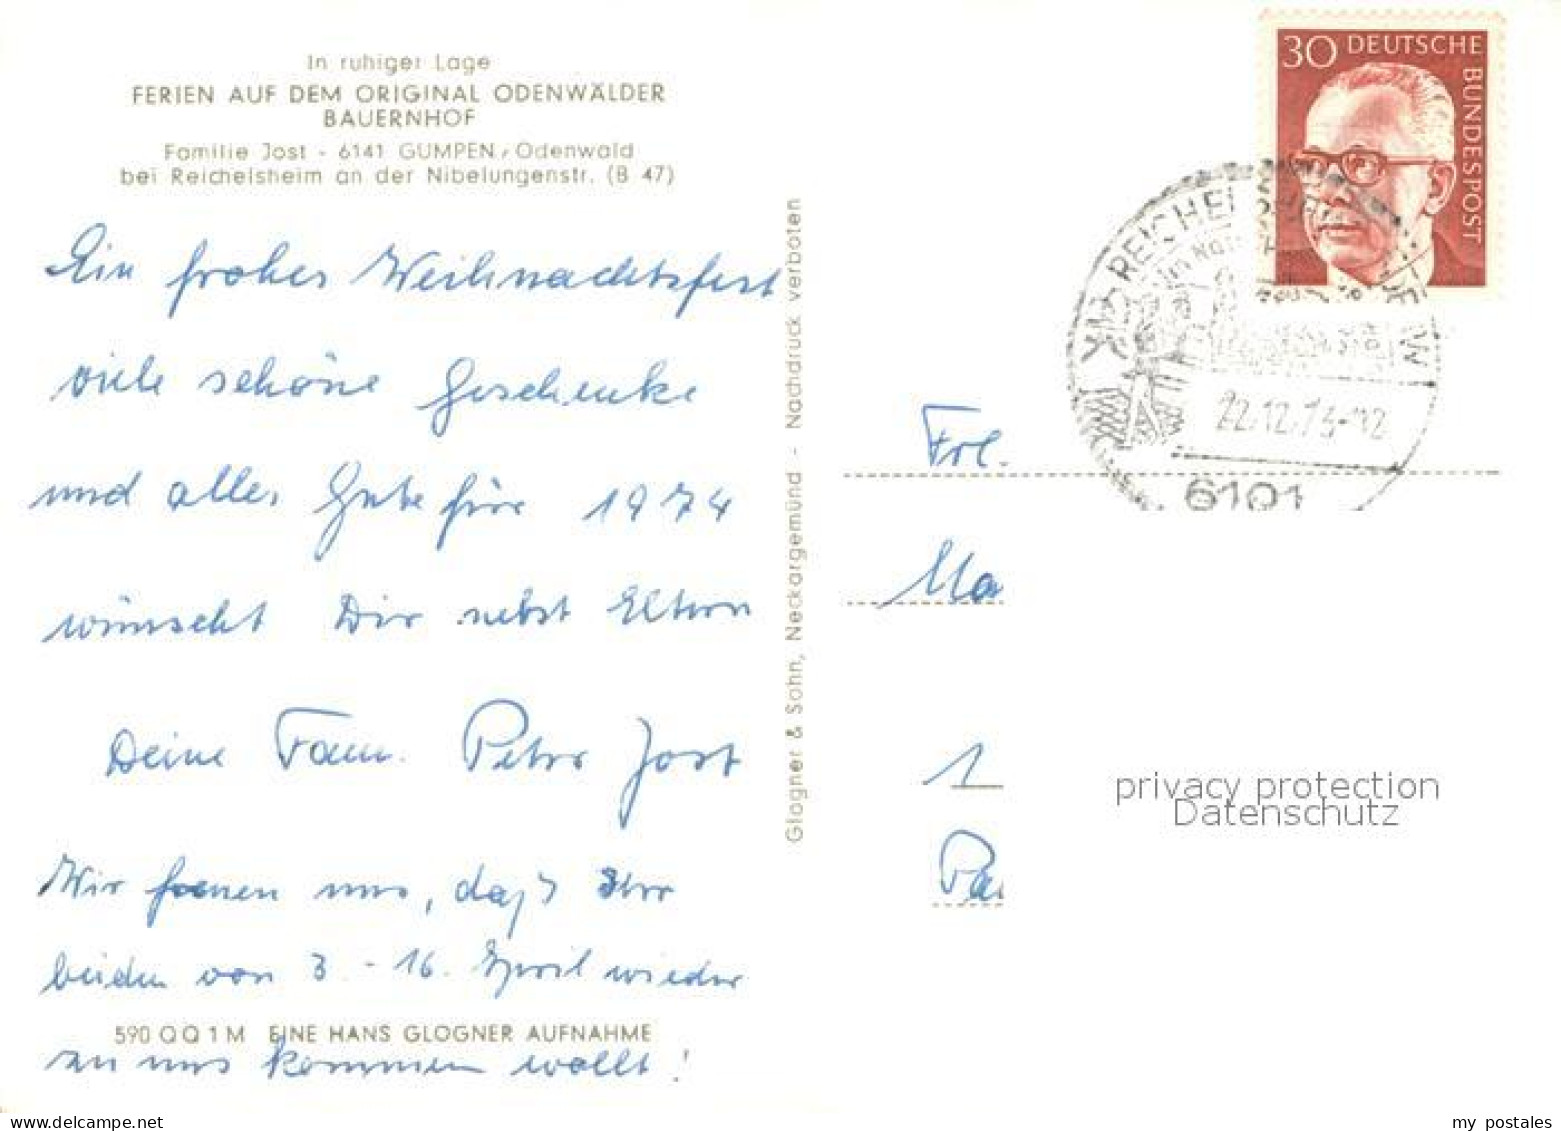 In ruhiger Lage
FERIEN AUF DEM ORIGINAL ODENWÄLDER
BAUERNHOF
Familie Jost - 6141 GUMPEN/Odenwald
bei Reichelsheim an der Nibelungenstr. (B 47)
Ein frohes Weihnachtsfest
viele schöne Geschenke
und alles Gute für 1974
wünscht Dir nebst Eltern
Deine Fam. Peter Jost
Wir freuen uns, daß Ihr
beiden von 3. - 16. April wieder
590 QQ 1 M EINE HANS GLOGNER AUFNAHME
zu uns kommen wollt!
Glogner & Sohn, Neckargemünd - Nachdruck verboten
30 DEUTSCHE BUNDESPOST
REICHELSHEIM
22.12.73-12
6101
Frl.
Ma
1
Pa
privacy protection
Datenschutz
my postales